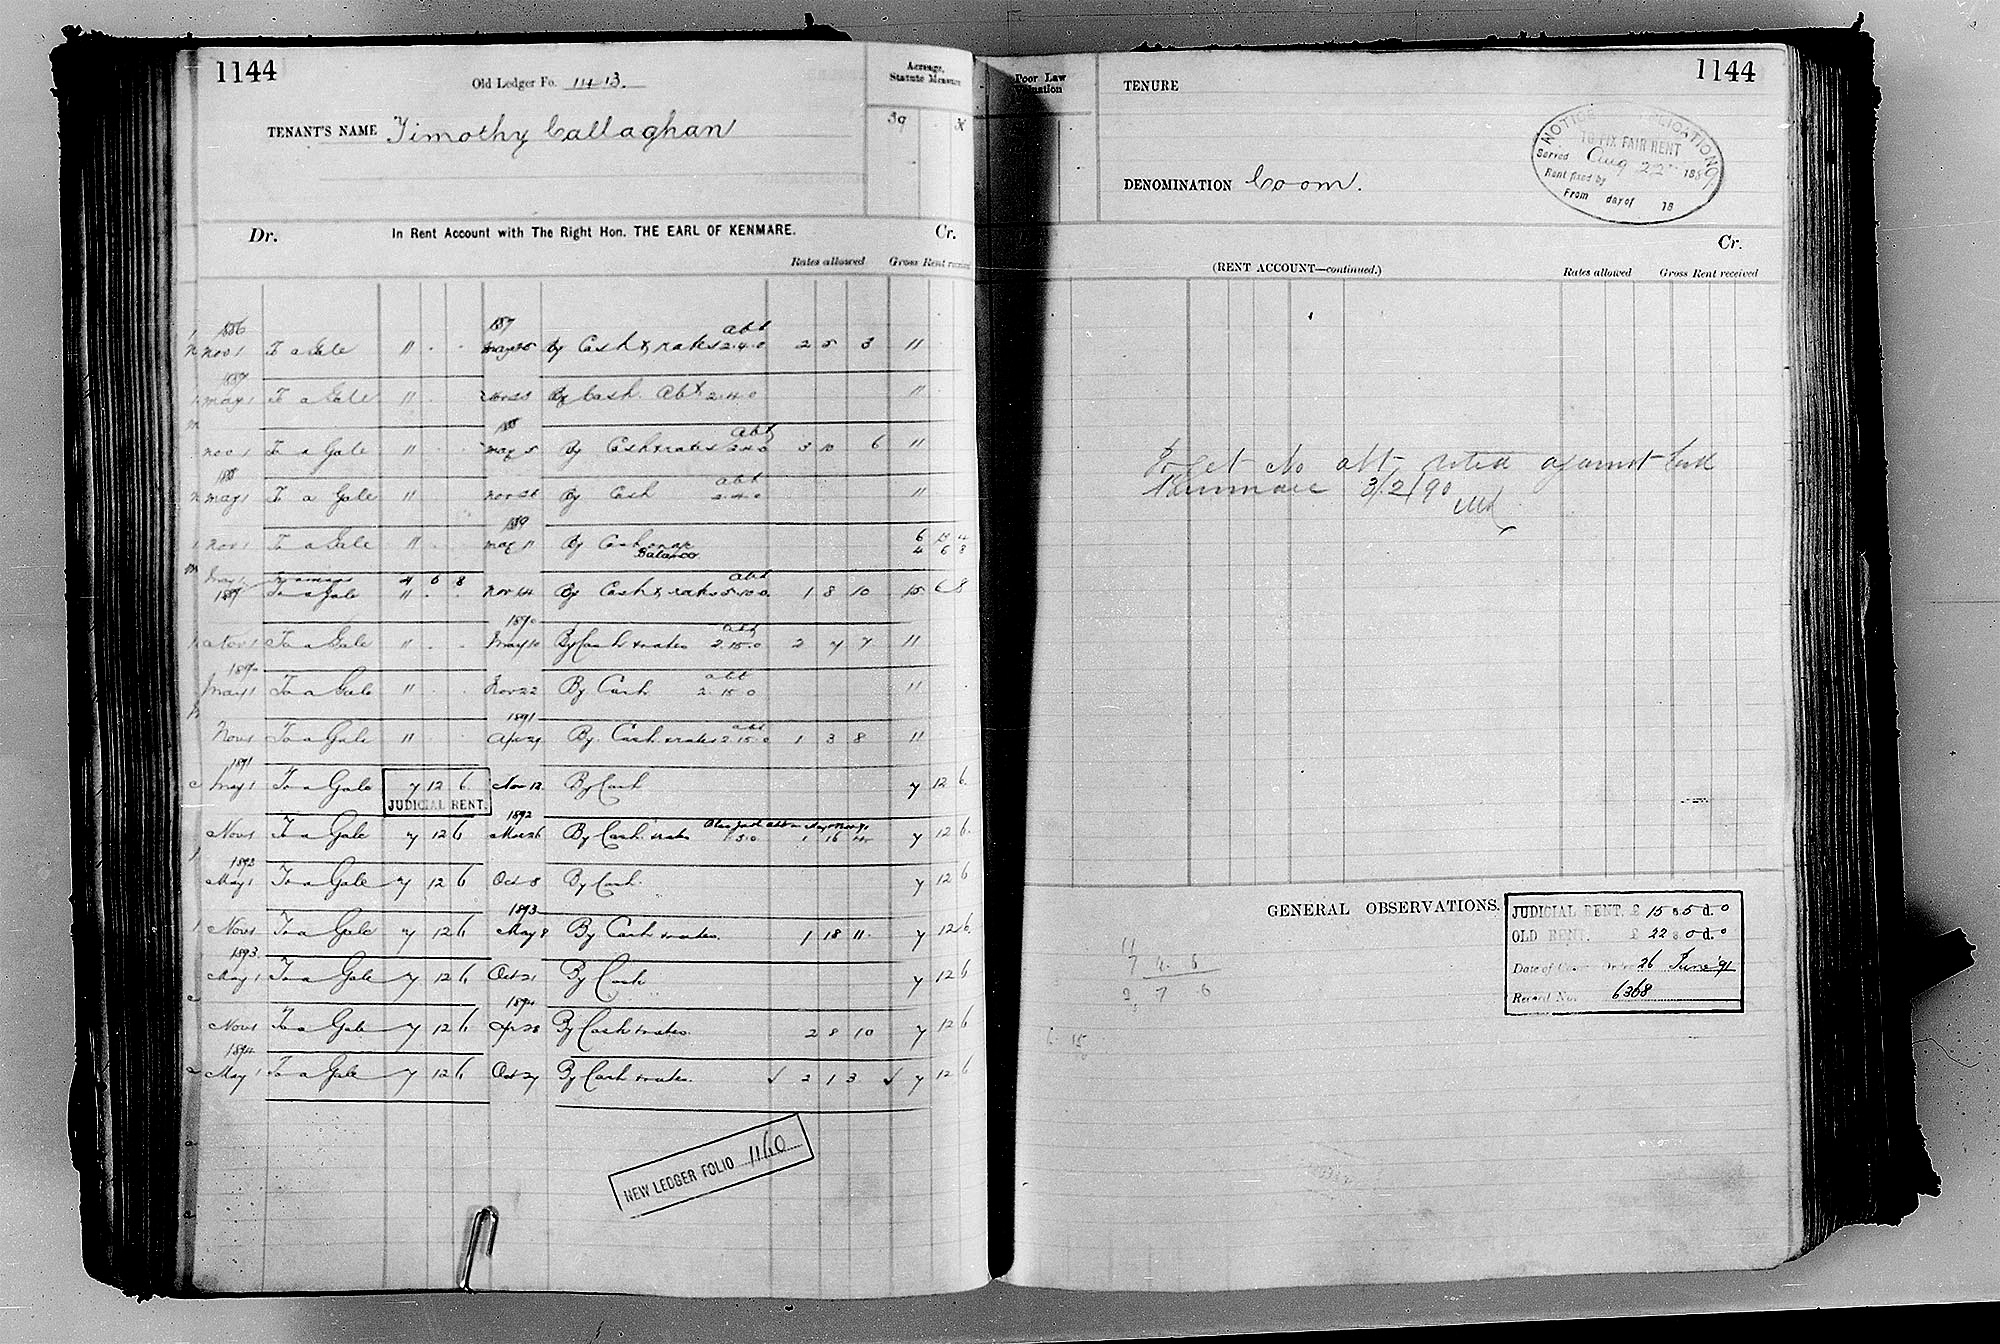 1144
Old Ledger Fo. 1143.
Acreage, Statute Measure
TENANT'S NAME Timothy Callaghan
39
Dr. In Rent Account with The Right Hon. THE EARL OF KENMARE. Cr.
Rates allowed Gross Rent received
1886 1887 abt
Nov 1 To a Gale 11 . . May 25 By Cash & rates 2.4.0 2 5 3 11
1887
May 1 To a Gale 11 . Nov 23 By Cash Abt 2.4.0 11
1888 abt
Nov 1 To a Gale 11 . . May 5 By Cash & rates 2.4.0 3 10 6 11
1888 abt
May 1 To a Gale 11 . . Nov 26 By Cash 2.4.0 11
1889
Nov 1 To a Gale 11 . . May 11 By Cash 6 13 4
Balance 4 6 8
May 1 To arrears 4 6 8 abt
1889 To a Gale 11 . . Nov 14 By Cash & rates 5.10.0 1 8 10 15 6 8
1890 abt
Nov 1 To a Gale 11 . . May 10 By Cash & rates 2.15.0 2 7 7 11
1890 abt
May 1 To a Gale 11 . . Nov 22 By Cash 2.15.0 11
1891 abt
Nov 1 To a Gale 11 Apl 29 By Cash & rates 2.15.0 1 3 8 11
1891
May 1 To a Gale 7 12 6 Nov 12 By Cash 7 12 6
JUDICIAL RENT.
1892
Nov 1 To a Gale 7 12 6 Mar 26 By Cash & rates 1.5.0 1 16 4 7 12 6
1892
May 1 To a Gale 7 12 6 Oct 8 By Cash. 7 12 6
1893
Nov 1 To a Gale 7 12 6 May 8 By Cash & rates. 1 18 11 7 12 6
1893
May 1 To a Gale 7 12 6 Oct 21 By Cash 7 12 6
1894
Nov 1 To a Gale 7 12 6 Apr 28 By Cash & rates. 2 8 10 7 12 6
1894
May 1 To a Gale 7 12 6 Oct 27 By Cash & rates. ✓ 2 1 3 ✓ 7 12 6
NEW LEDGER FOLIO 1160
1144
Poor Law Valuation
TENURE
NOTICE APPLICATION
TO FIX FAIR RENT
Served Aug 22 1889
Rent fixed by
From day of 18
DENOMINATION Coom.
Cr.
(RENT ACCOUNT—continued.) Rates allowed Gross Rent received
abt, against
Kenmare 3/2/90
GENERAL OBSERVATIONS.
JUDICIAL RENT, £ 15 s 5 d. 0
OLD RENT. £ 22 s 0 d. 0
Date of Order 26 June '91
Record No. 6368
11
7 4. 6
2 7 6
6 15